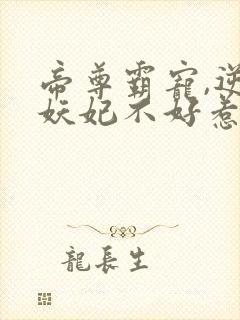 帝尊霸寵,逆
妖妃不好惹
龍長生